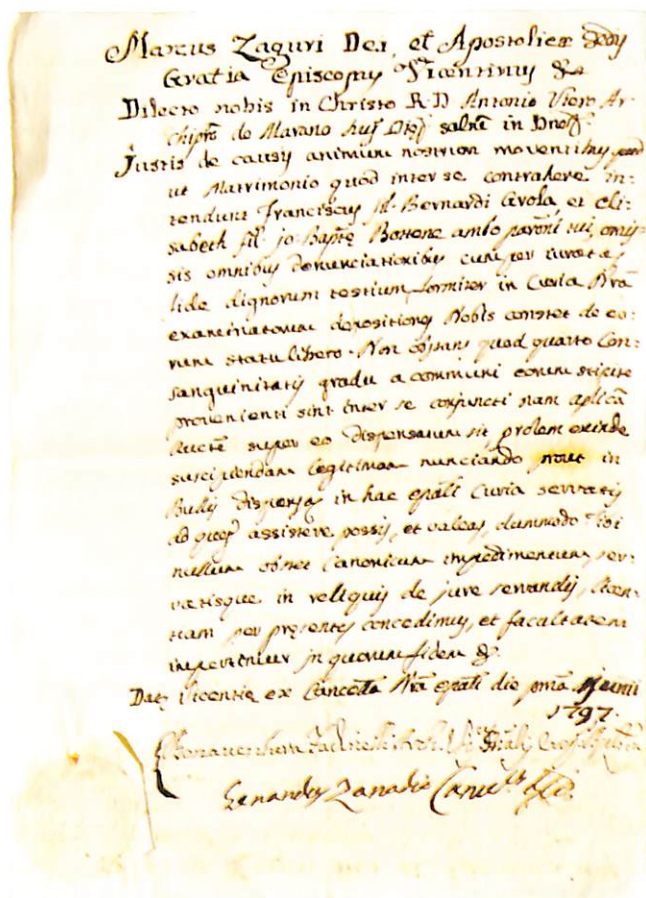 Marcus Zaguri Dei, et Apostolicæ Sedis
Gratia Episcopus Vicentinus &a
Dilecto nobis in Christo R. D. Antonio Viero Ar-
chiprō de Marano huj. salm̄ in Dnō
Justis de causis animum nostrum moventibus
ut Matrimonio quod inter se contrahere in-
tendunt Franciscus fil. Bernardi Grola, et Eli-
sabeth fil. jo: Baptę Bottene ambo tui, omis-
sis omnibus denunciationibus cum per juratas
fide dignorum testium formiter in Curia Nrā
examinatorum depositiones Nobis constet de eo-
rum statu libero. Non obstan. quod quarto Con-
sanguinitatis gradu a communi eorum stipite
provenienti sint inter se conjuncti nam aplicā
Auctē super eo dispensatum sit prolem exinde
suscipiendam legitimam nunciando prout in
Bullis in hac epali Curia servatis
assistere possis, et valeas, dummodo Tibi
nullum obstet Canonicum impedimentum, ser-
vatisque in reliquis de jure servandis, licen-
tiam per presentes concedimus, et facultatem
impertimur in quorum fidem &.
Dat. Vicentię ex Cancellā Nrā epali die prmā Junii
1797.